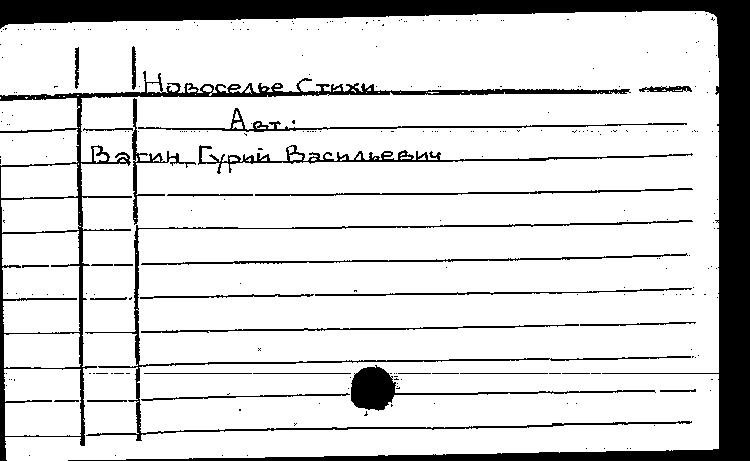 Новоселье Стихи
Авт.:
Вагин, Гурий Васильевич